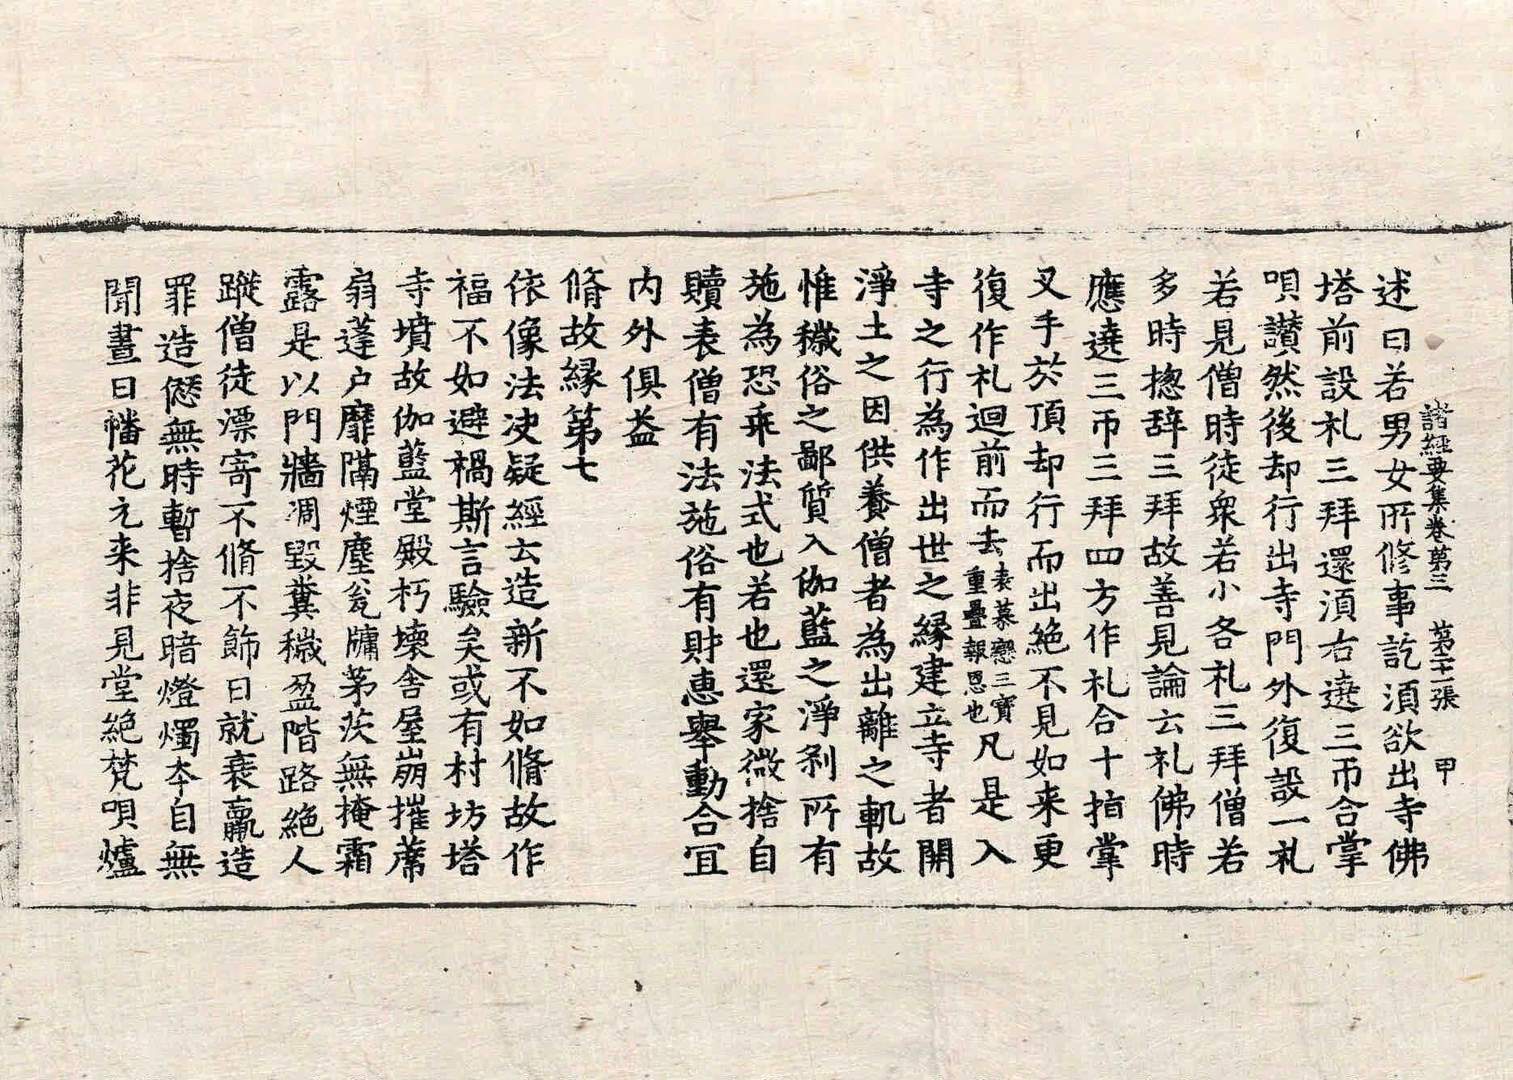 諸經要集卷第三 第二十一張 甲
述曰若男女所修事訖湏欲出寺佛
塔前設札三拜還湏右遶三帀合掌
唄讃然後却行出寺門外復設一札
若見僧時徒衆若小各札三拜僧若
多時揔辞三拜故善見論云札佛時
應遶三帀三拜四方作札合十指掌
叉手於頂却行而出絶不見如来更
復作札迴前而去表慕戀三寶重疊報恩也凡是入
寺之行為作出世之緣建立寺者開
淨土之因供養僧者為出離之軌故
惟穢俗之鄙質入伽藍之淨刹所有
施為恐乖法式也若也還家微捨自
贖表僧有法施俗有財惠舉動合冝
内外俱益
脩故緣第七
依像法决疑經云造新不如脩故作
福不如避禍斯言驗矣或有村坊塔
寺墳故伽藍堂殿朽壞舎屋崩摧蓆
扇蓬户靡隔煙塵瓮牖茅茨無掩霜
露是以門牆凋毀糞穢盈階路絶人
蹤僧徒漂寄不脩不飾日就衰羸造
罪造𠎝無時暫捨夜暗燈燭夲自無
聞晝日幡花元来非見堂絶梵唄爐